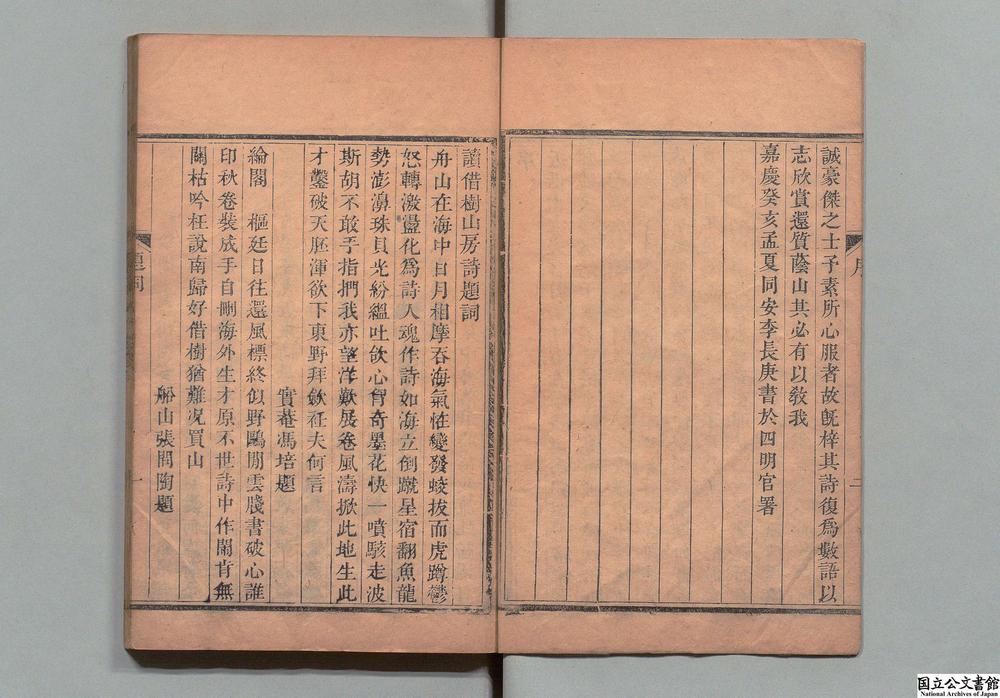 誠豪傑之士予素所心服者故旣梓其詩復爲數語以
志欣賞還質蔭山其必有以敎我
嘉慶癸亥孟夏同安李長庚書於四明官署
序
二
讀借樹山房詩題詞
舟山在海中日月相摩吞海氣恠變發蛟拔而虎蹲鬱
怒轉激盪化爲詩人魂作詩如海立倒蹴星宿翻魚龍
勢澎濞珠貝光紛緼吐欱心胷奇墨花快一噴駭走波
斯胡不敢手指捫我亦望洋歎展卷風濤掀此地生此
才鑿破天胚渾欲下東野拜斂衽夫何言
實菴馮培題
綸閣 樞廷日往還風標終似野鷗閒雲牋書破心誰
印秋卷裝成手自刪海外生才原不世詩中作閙肯無
關枯吟枉說南歸好借樹猶難况買山
船山張問陶題
題詞
一
国立公文書館
National Archives of Japan